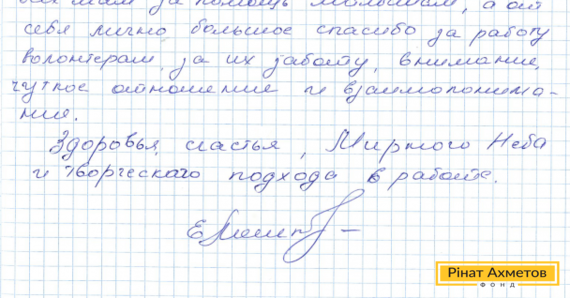 за помощь малышам, а от
себя лично большое спасибо за работу
волонтерам, за их заботу, внимание,
чуткое отношение и взаимопонима-
ние.
Здоровья, счастья, Мирного Неба
и творческого подхода в работе.
Рінат Ахметов
ФОНД